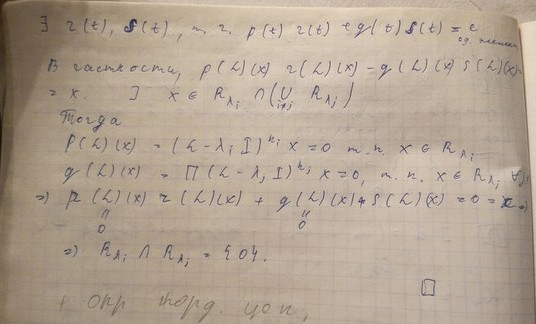 ∃ r(t), S(t), т.ч. p(t) r(t) + q(t) S(t) = e
В частности, p(L)(x) r(L)(x) - q(L)(x) S(L)(x) =
= x. ∃ x ∈ R_λi ∩ (∪_{i≠j} R_λj)
Тогда
P(L)(x) = (L - λ_i I)^{k_i} x = 0 т.к. x ∈ R_λi
q(L)(x) = Π (L - λ_j I)^{k_j} x = 0, т.к. x ∈ R_λj ∀j
⇒ p(L)(x) r(L)(x) + q(L)(x) S(L)(x) = 0 = x ⇒
" "
0 0
⇒ R_λi ∩ R_λj = {0}.
□
+ опр жорд. цеп,